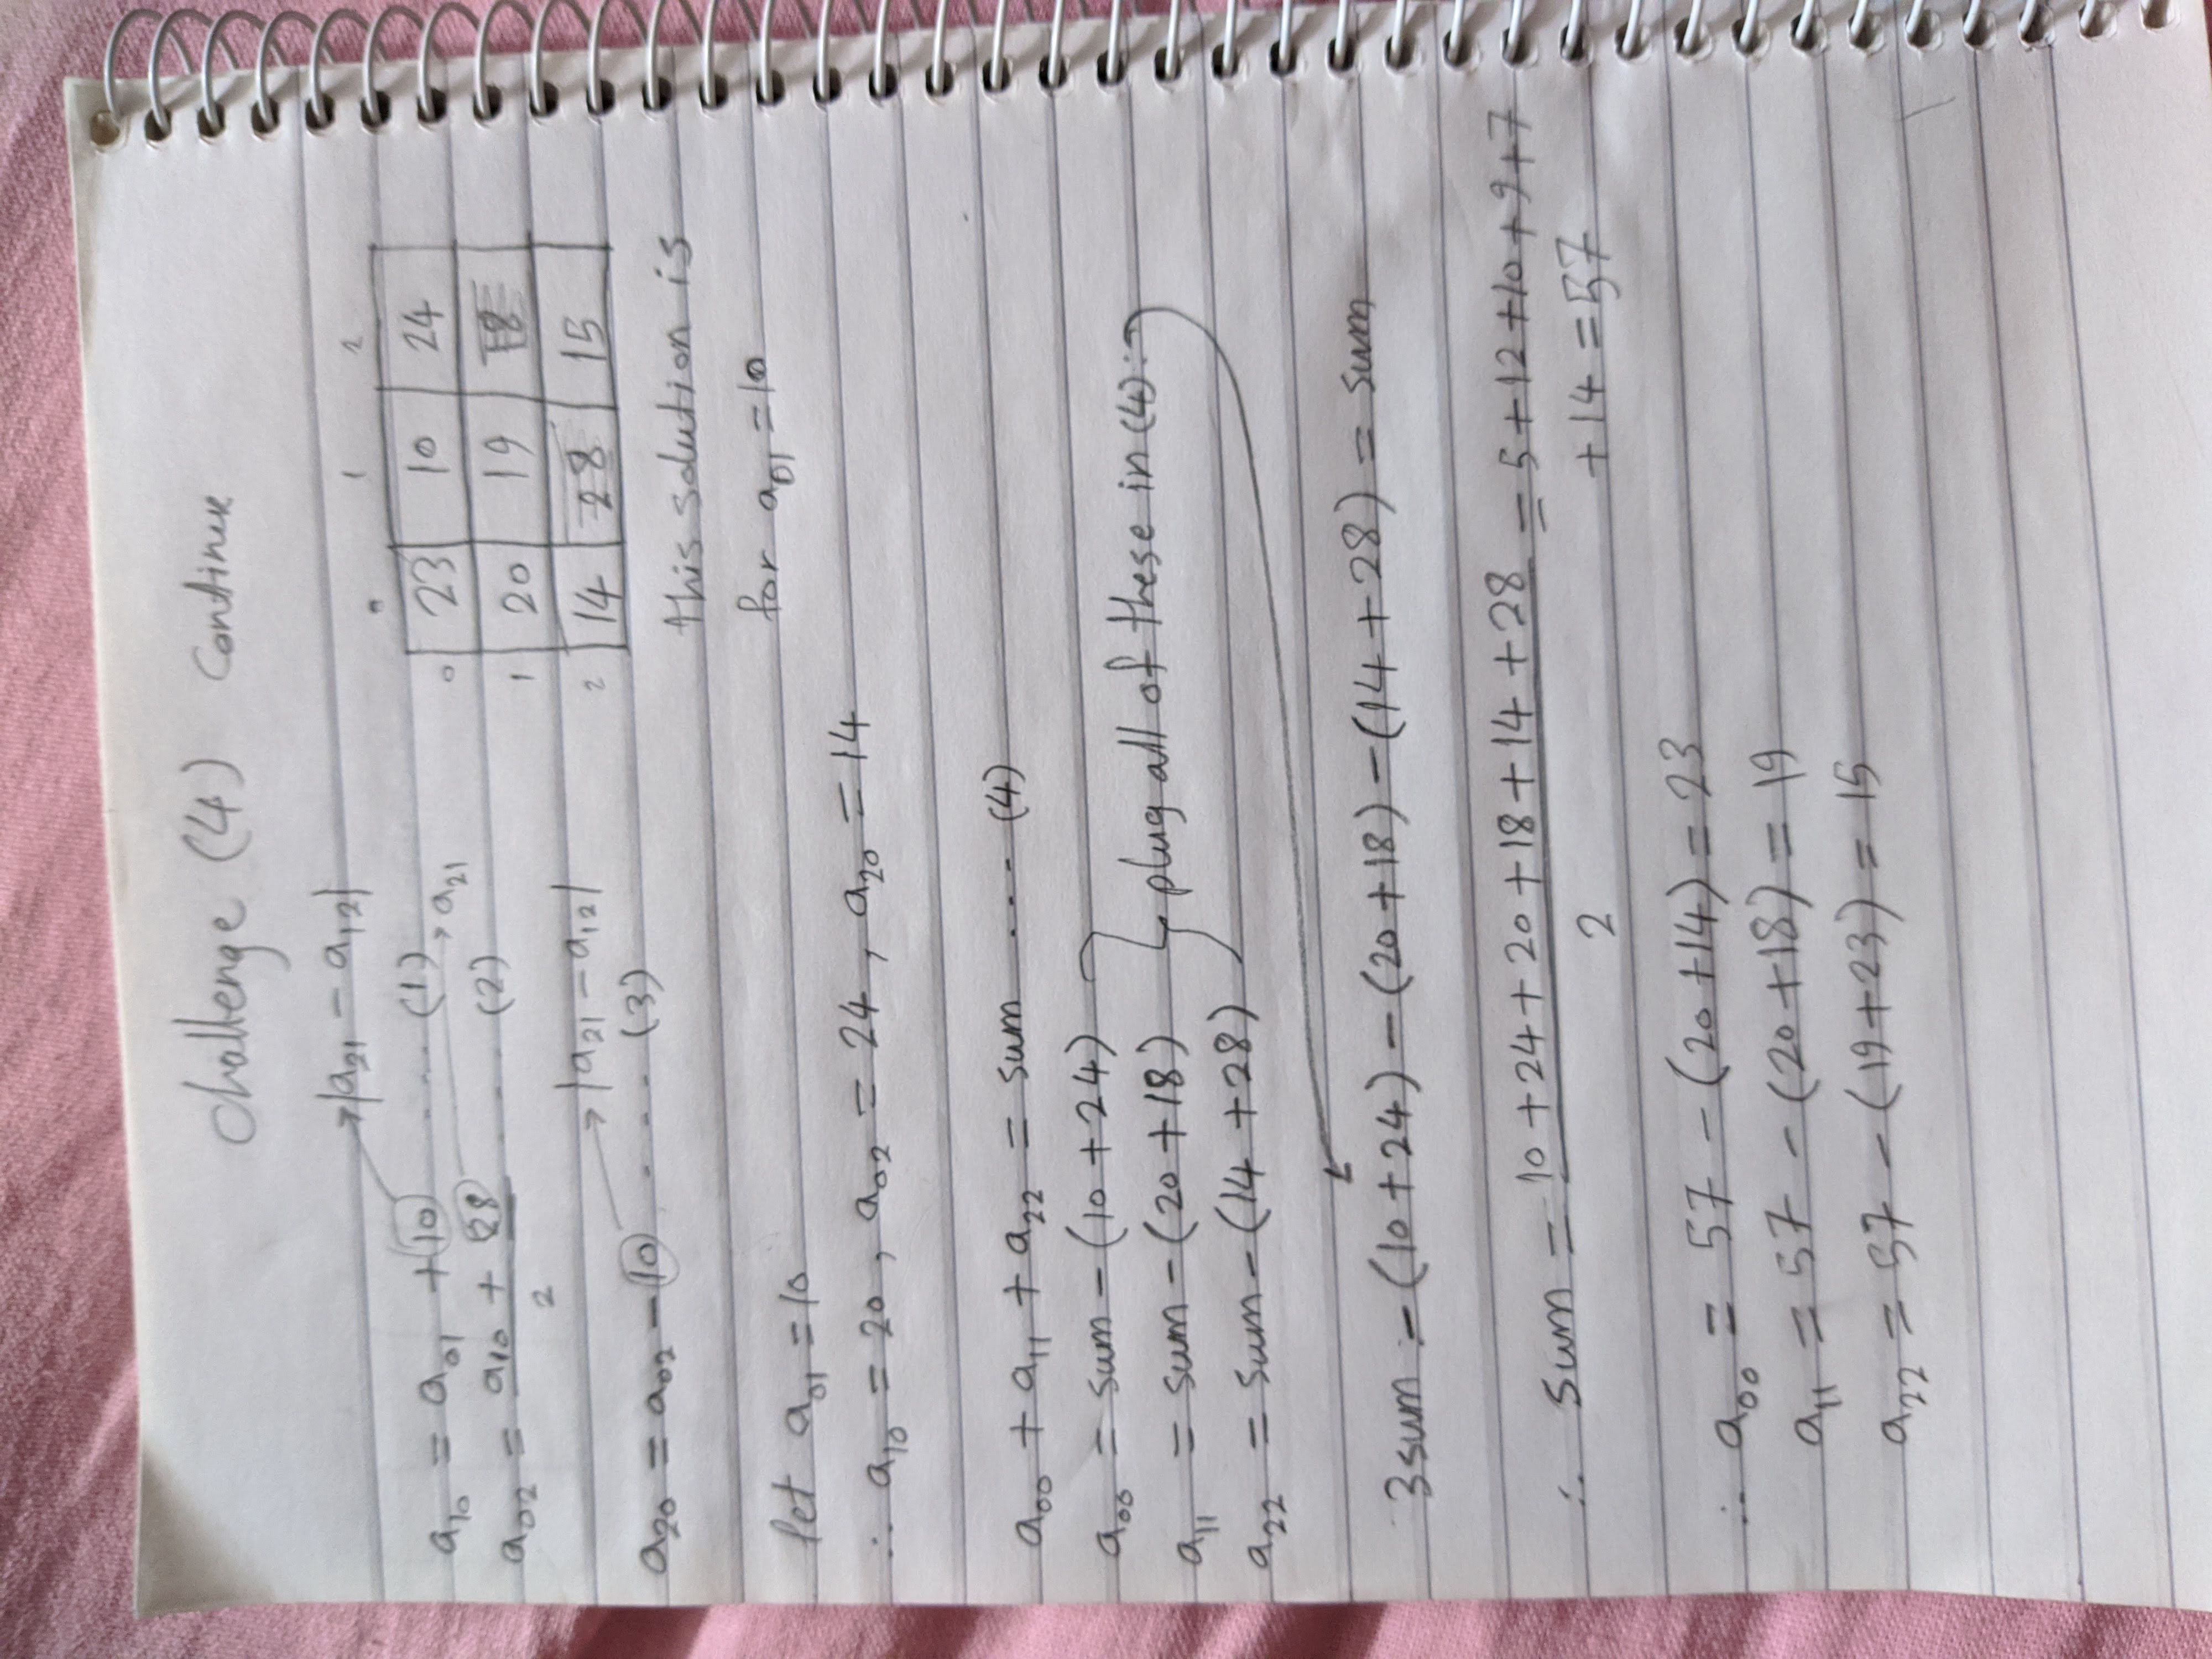 Challenge (4) Continue
→|a₂₁ - a₁₂|
a₁₀ = a₀₁ + 10 .... (1)
→ a₂₁
a₀₂ = (a₁₀ + 28) / 2 .... (2)
→ |a₂₁ - a₁₂|
a₂₀ = a₀₂ - 10 .... (3)
0 1 2
0 23 10 24
1 20 19 18
2 14 28 15
this solution is
for a₀₁ = 10
let a₀₁ = 10
∴ a₁₀ = 20 , a₀₂ = 24 , a₂₀ = 14
a₀₀ + a₁₁ + a₂₂ = sum .... (4)
a₀₀ = sum - (10 + 24)
a₁₁ = sum - (20 + 18)
a₂₂ = sum - (14 + 28)
plug all of these in (4):-
3sum - (10 + 24) - (20 + 18) - (14 + 28) = sum
∴ sum = (10 + 24 + 20 + 18 + 14 + 28) / 2 = 5 + 12 + 10 + 9 + 7
+ 14 = 57
∴ a₀₀ = 57 - (20 + 14) = 23
a₁₁ = 57 - (20 + 18) = 19
a₂₂ = 57 - (19 + 23) = 15